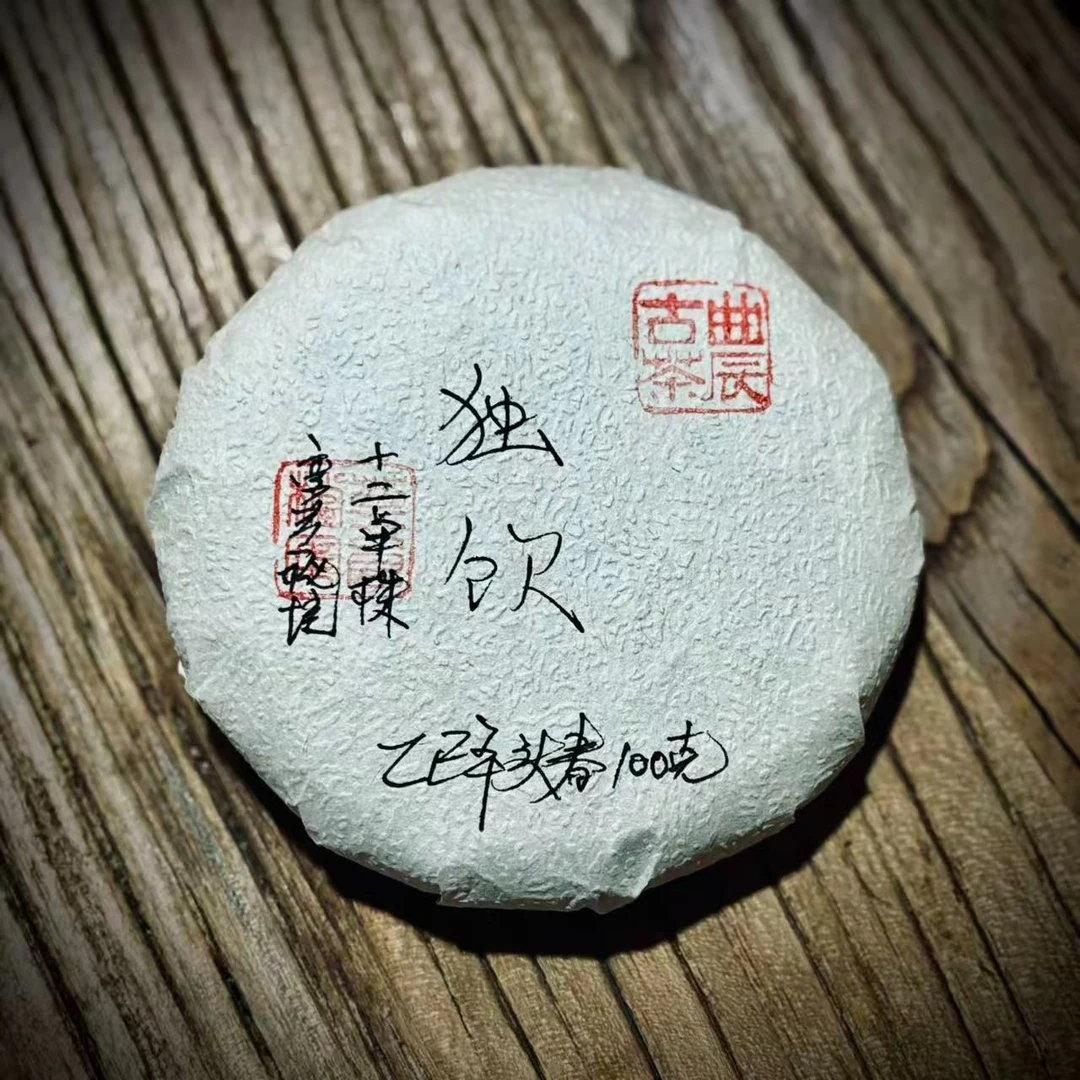 農古茶
独饮
十二号单株
乙巳年头春100克